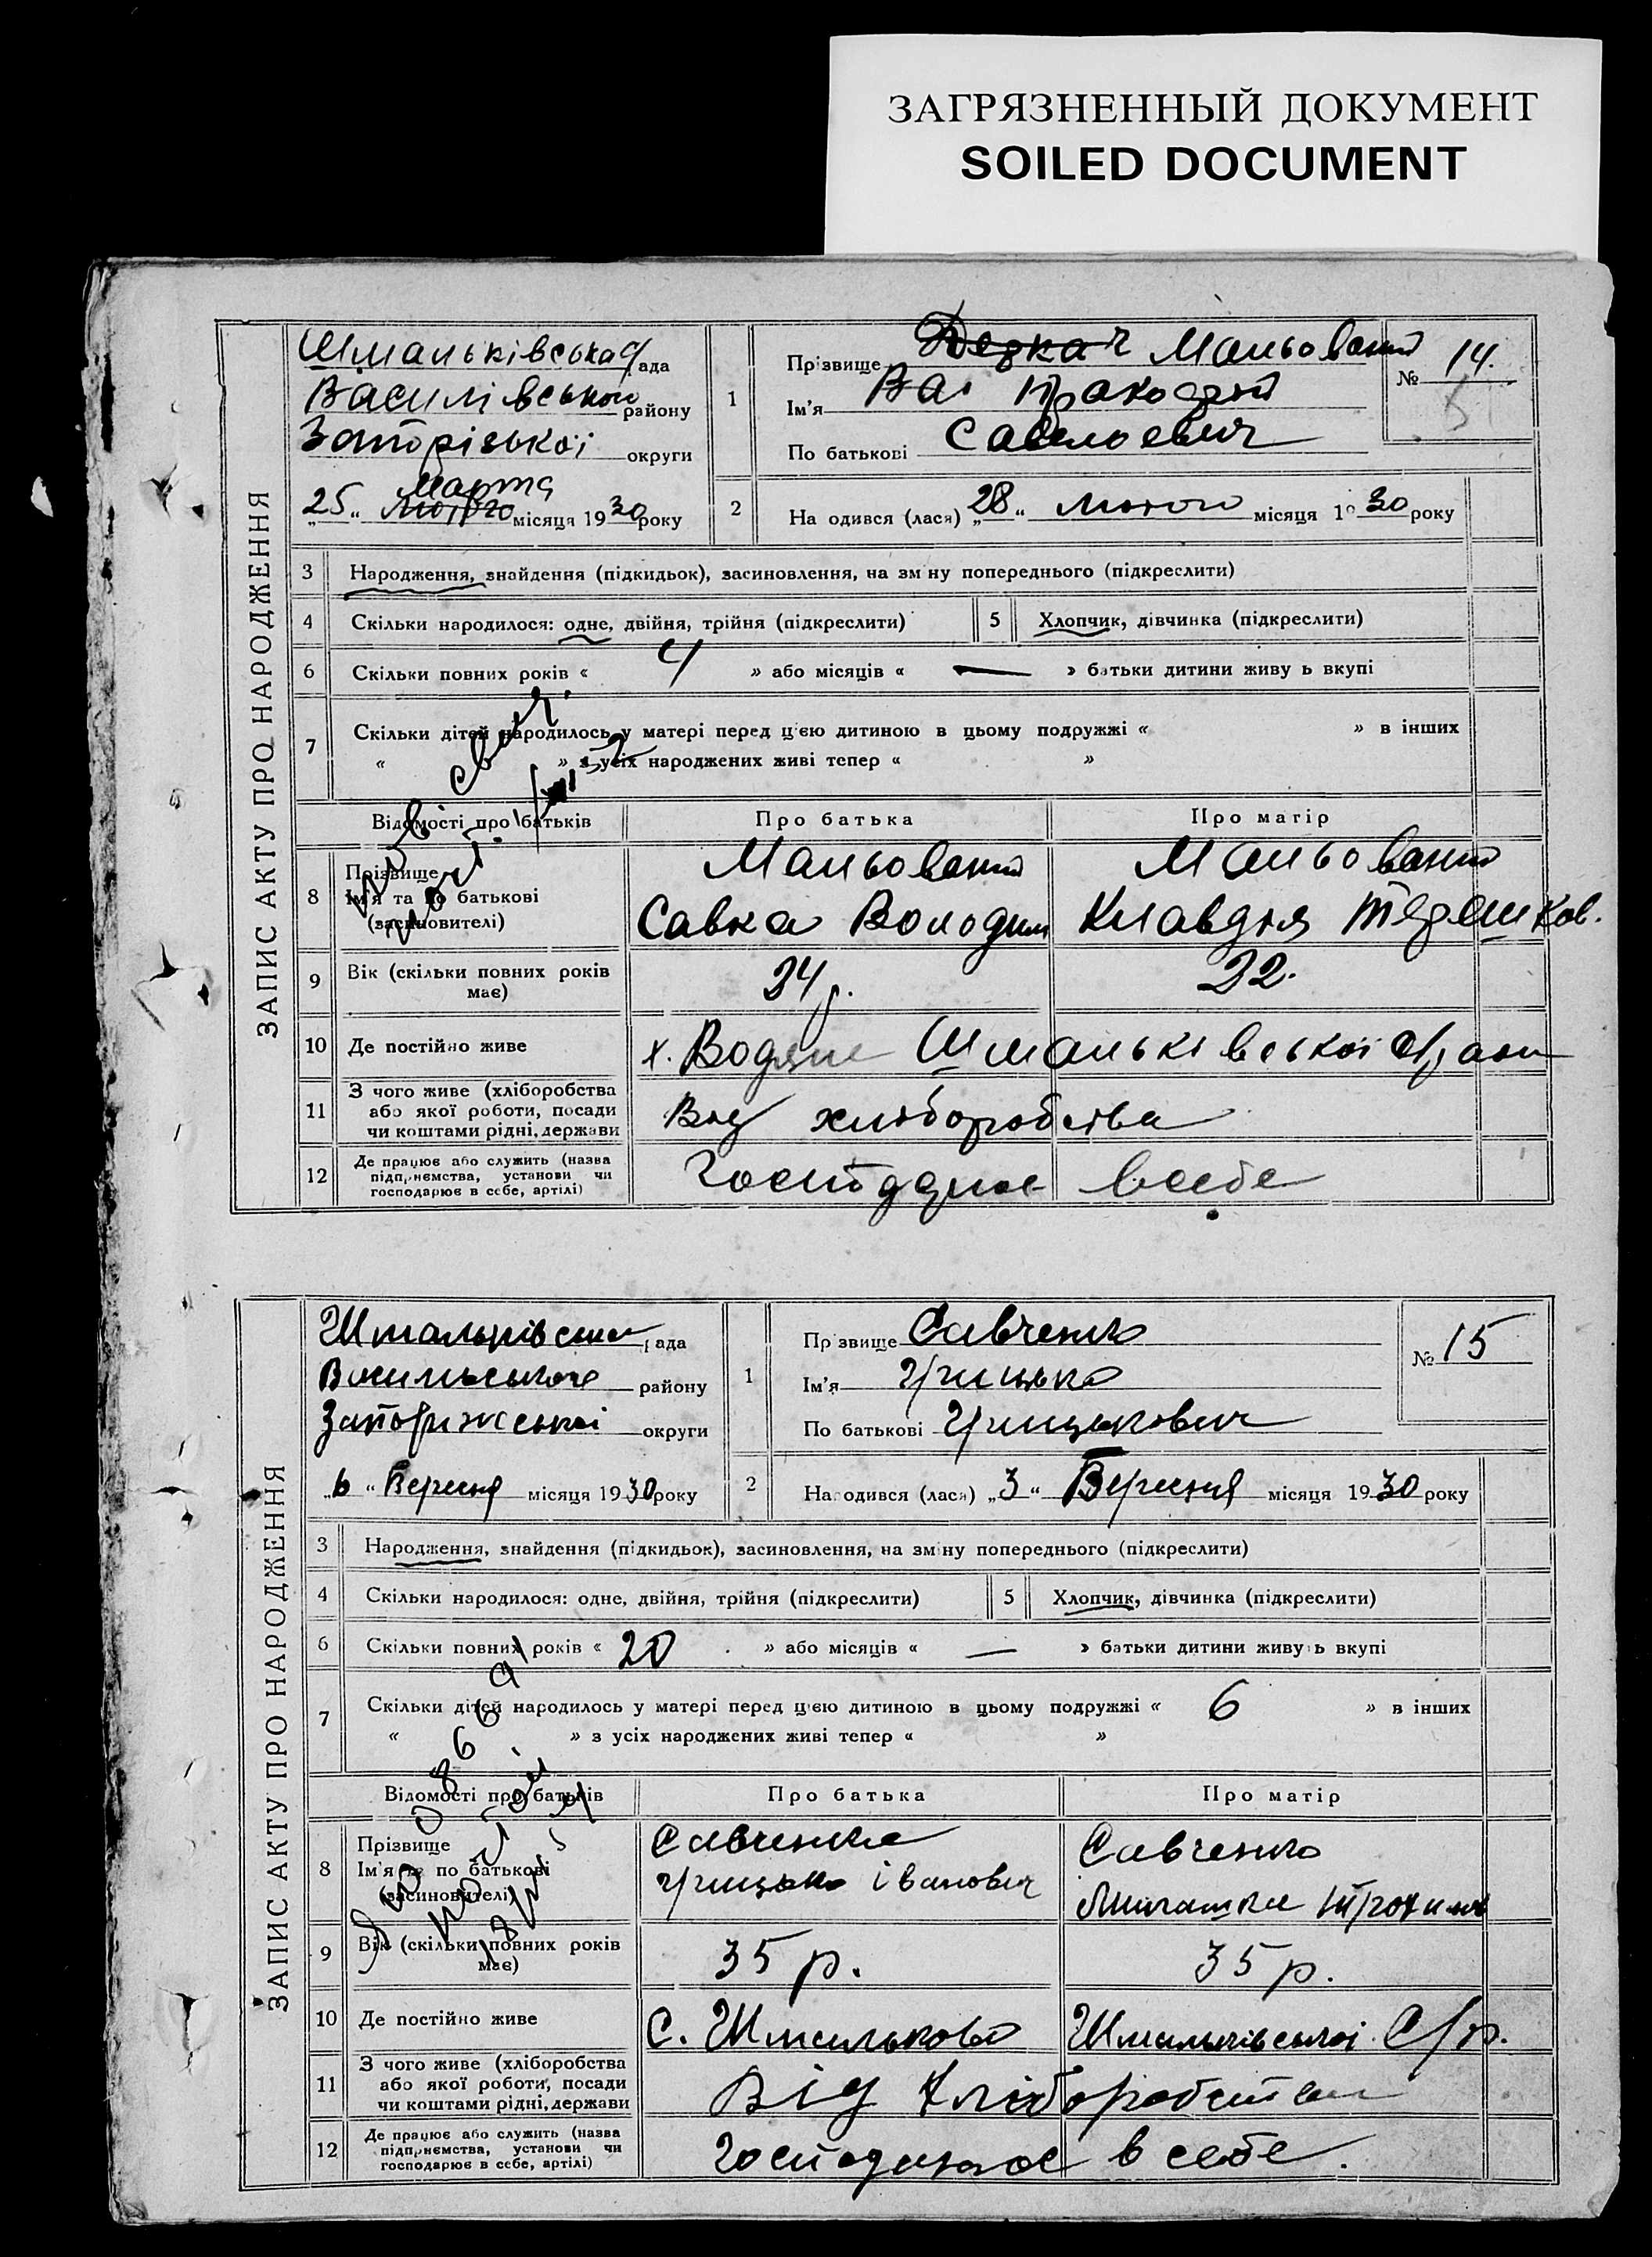 ЗАГРЯЗНЕННЫЙ ДОКУМЕНТ
SOILED DOCUMENT
ЗАПИС АКТУ ПРО НАРОДЖЕННЯ
Шмальківська рада
Василівського району
Запорізької округи
Марта
„25“ лютого місяця 1930 року
1
Прізвище Мальований
Ім'я
По батькові Савельевич
№ 14.
2
На одився (лася) „28“ лютого місяця 1930 року
3 Народження, знайдення (підкидьок), засиновлення, на зм ну попереднього (підкреслити)
4 Скільки народилося: одне, двійня, трійня (підкреслити)
5 Хлопчик, дівчинка (підкреслити)
6 Скільки повних років « 4 » або місяців « — » батьки дитини живу ь вкупі
7 Скільки дітей народилось у матері перед цією дитиною в цьому подружжі « » в інших
« » з усіх народжених живі тепер « »
Відомості про батьків Про батька Про матір
8 Прізвище Ім'я та по батькові (засиновителі)
Мальований Мальований
Савка Володим Клавдія Терешков.
9 Вік (скільки повних років має) 24 р. 22.
10 Де постійно живе х. Водяне Шмальківської с/ради
11 З чого живе (хліборобства або якої роботи, посади чи коштами рідні, держави
Від хліборобства
12 Де працює або служить (назва підприємства, установи чи господарює в себе, артілі)
в себе
ЗАПИС АКТУ ПРО НАРОДЖЕННЯ
Шмальківська рада
району
округи
„6“ Березня місяця 1930 року
1
Пр звище Савченко
Ім'я Грицько
По батькові Грицькович
№ 15
2
На одився (лася) „3“ Березня місяця 1930 року
3 Народження, знайдення (підкидьок), засиновлення, на зміну попереднього (підкреслити)
4 Скільки народилося: одне, двійня, трійня (підкреслити)
5 Хлопчик, дівчинка (підкреслити)
6 Скільки повних років « 20 » або місяців « — » батьки дитини живу ь вкупі
7 Скільки дітей народилось у матері перед цією дитиною в цьому подружжі « 6 » в інших
« » з усіх народжених живі тепер « »
Відомості про батьків Про батька Про матір
8 Прізвище Ім'я та по батькові (засиновителі)
Савченко Савченко
Грицько Іванович
9 Вік (скільки повних років має) 35 р. 35 р.
10 Де постійно живе с. Шмальково Шмальківської С/р.
11 З чого живе (хліборобства або якої роботи, посади чи коштами рідні, держави
Від хліборобства
12 Де працює або служить (назва підприємства, установи чи господарює в себе, артілі)
в себе.